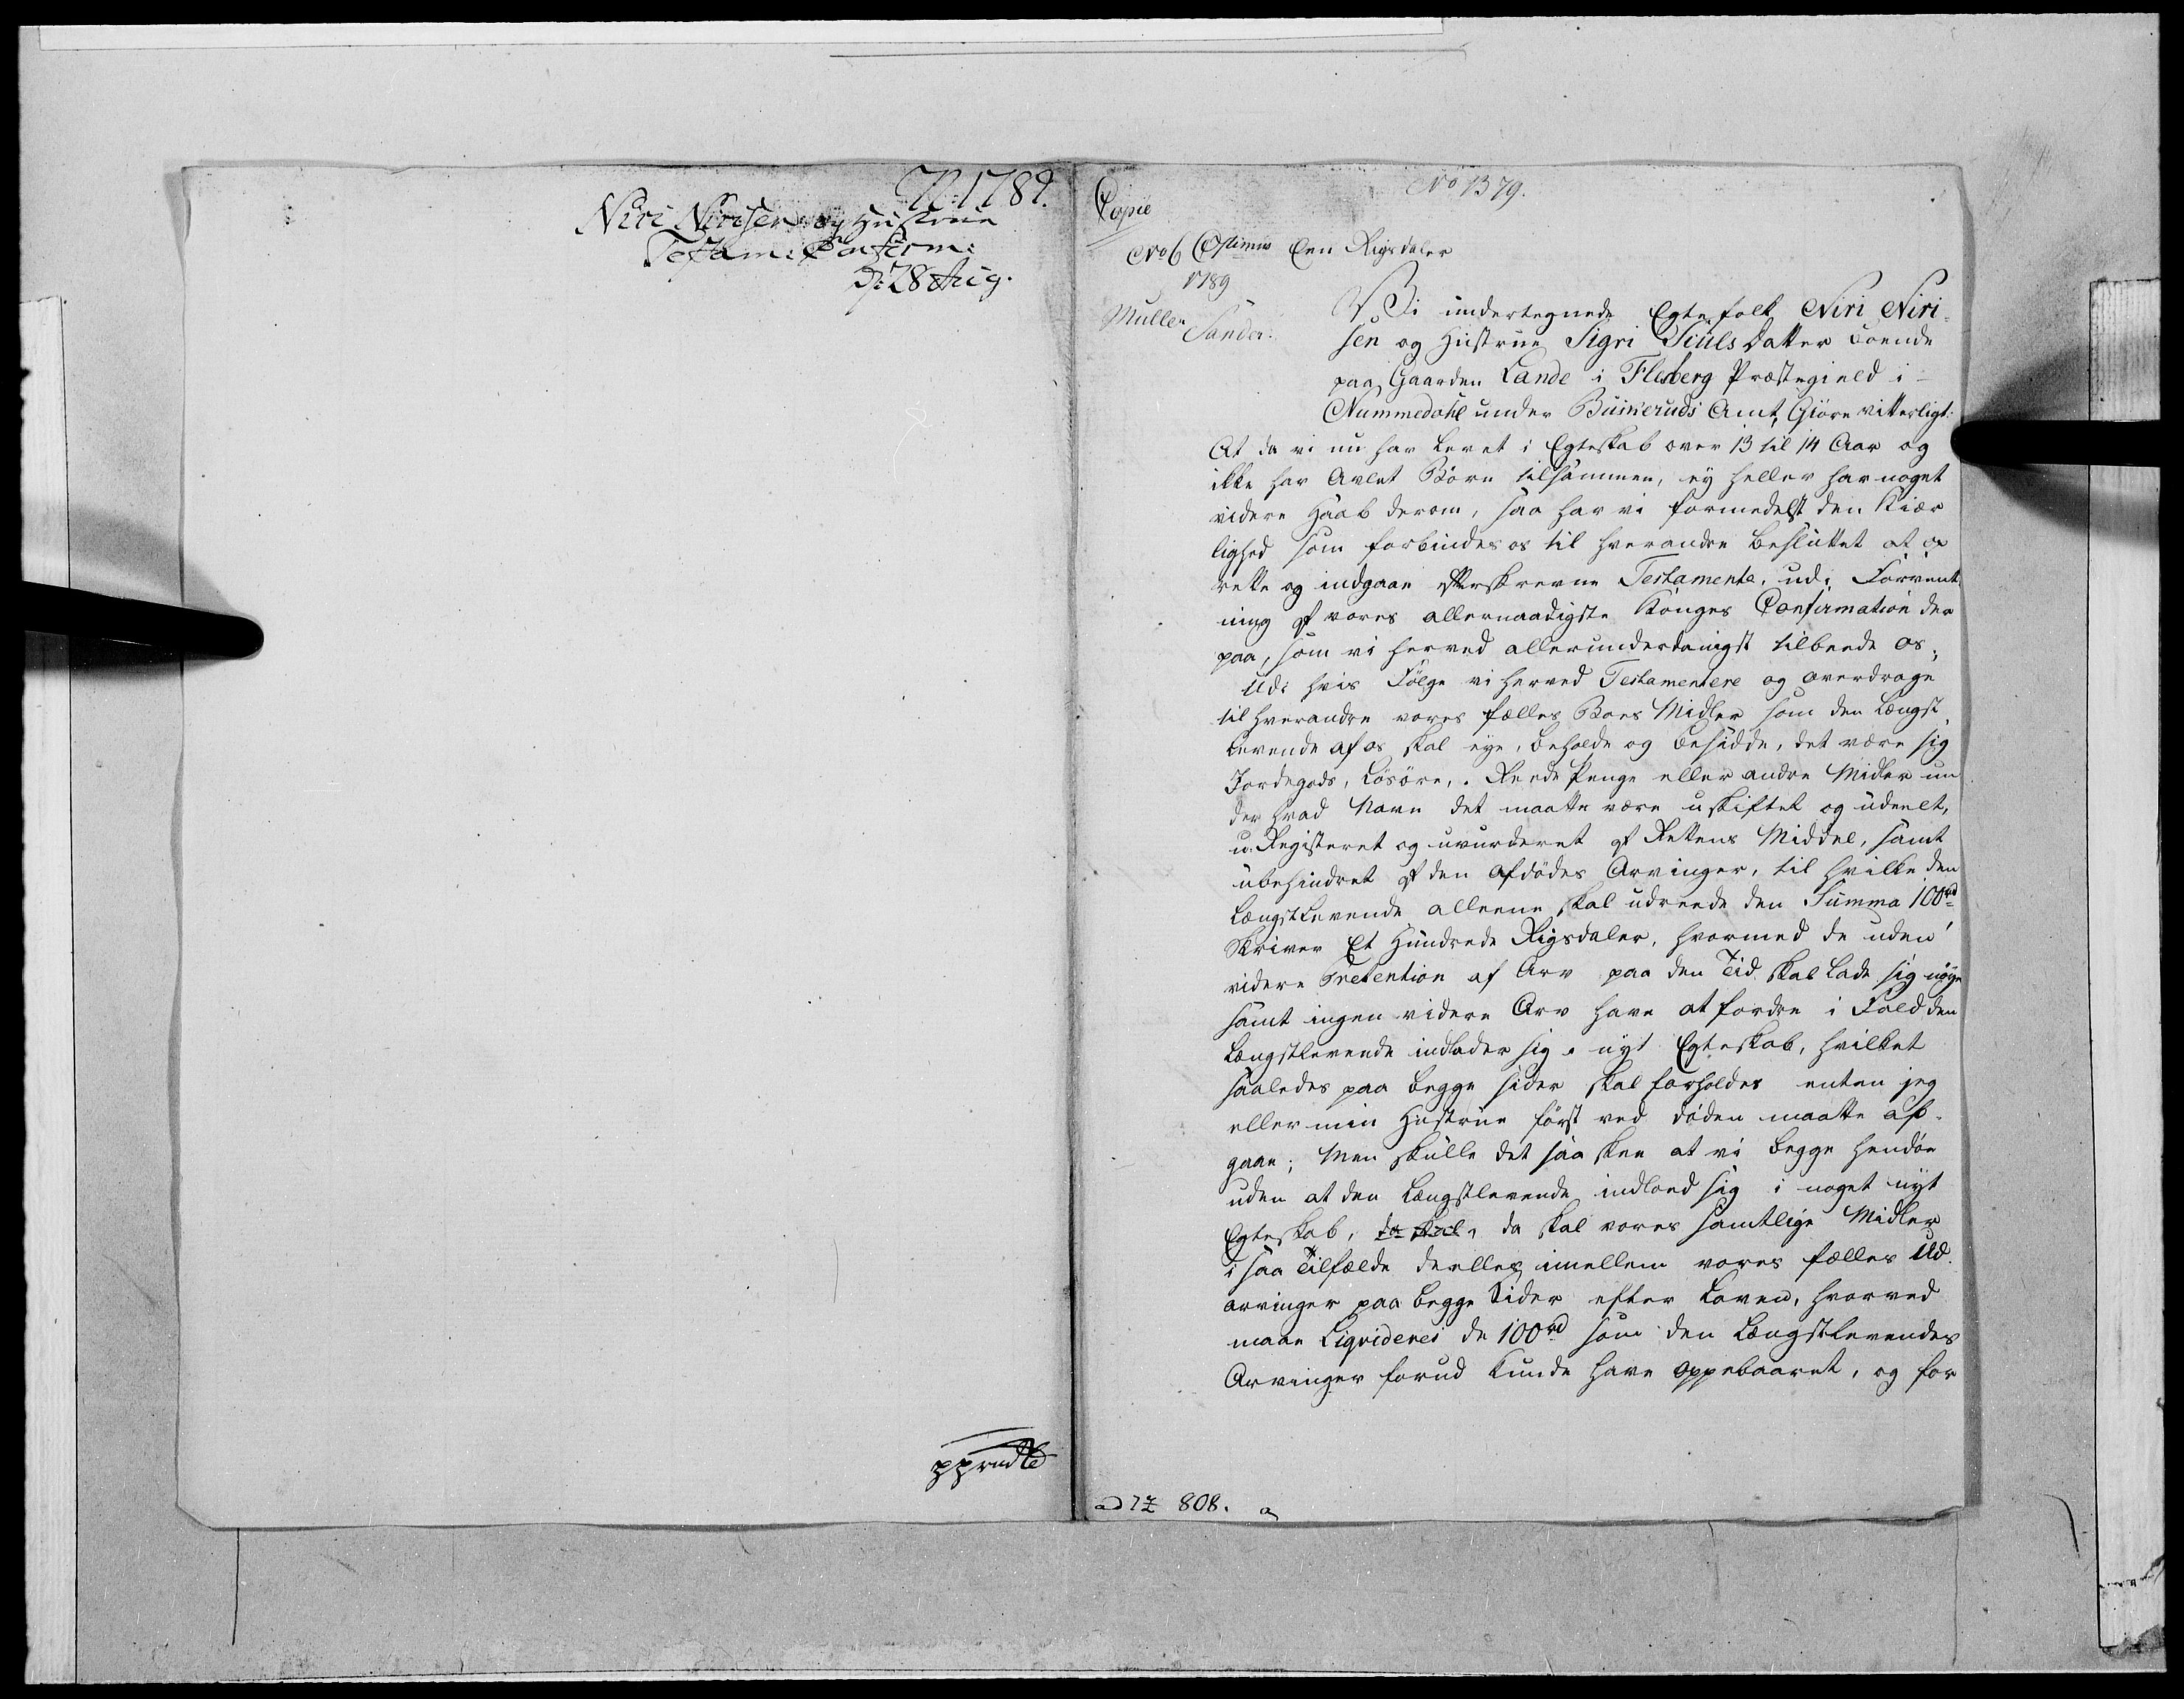 1789.
Niri Nirisen og Hustrue
Testam: Confirm:
D: 28 Aug.
Copie
No 1379.
No 6 Een Rigsdaler
1789
Müller
Sander.
Vi undertegnede Egtefolk Niri Niri-
sen og Hustrue Sigri Siuls Datter boende
paa Gaarden Lande i Flesberg Præstegield i
Nummedahl under Buskeruds Amt, Giøre vitterligt:
At da vi nu har levet i Egteskab over 13 til 14 Aar og
ikke har Avlet Börn tilsammen, ey heller har noget
videre Haab derom, saa har vi formedelst den Kiær
lighed som forbinder os til hverandre besluttet at op
rette og indgaae efterskrevne Testamente, udi Forvent
ning af vores allernaadigste Konges Confirmation der
paa, som vi herved allerunderdanigst udbeede os;
Udi hvis Fölge vi herved Testamentere og overdrage
til hverandre vores fælles Boes Midler som den Længst
levende af os skal eye, beholde og besidde, det være sig
Jordegods, Lösöre, Reede Penge eller andre Midler un
der hvad Navn det maatte være uskiftet og udeelt,
u-Registeret og uvurderet af Rettens Middel, samt
ubehindret af den afdödes Arvinger, til hvilke den
Længstlevende alleene skal udreede den Summa 100 rd
Skriver Et Hundrede Rigsdaler, hvormed de uden
videre Prætention af Arv paa den Tid skal lade sig nöye
samt ingen videre Arv have at fordre i Fald den
Længstlevende indlader sig i nyt Egteskab, hvilket
saaledes paa begge sider skal forholdes enten jeg
eller min Hustrue först ved döden maatte af-
gaae; Men skulle det saa skee at vi begge hendöe
uden at den Længstlevende indlod sig i noget nyt
Egteskab, da skal, da skal vores samtlige Midler
i saa Tilfælde deeles imellem vores fælles Ud-
arvinger paa begge Sider efter Loven, hvorved
maae Liqvideres de 100 rd som den Længstlevendes
Arvinger forud kunde have oppebaaret, og for
ad 808.